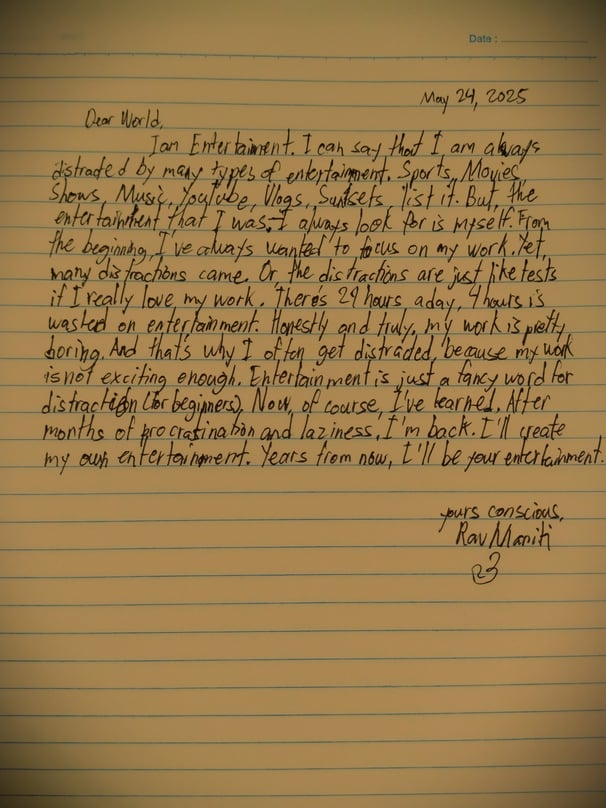 Date :
May 24, 2025
Dear World,
I am Entertainment. I can say that I am always
distracted by many types of entertainment. Sports, Movies,
Shows, Music, YouTube, Vlogs, Sunsets, list it. But, the
entertainment that I was I always look for is myself. From
the beginning, I've always wanted to focus on my work. Yet,
many distractions came. Or the distractions are just like tests
if I really love my work. There's 24 hours a day, 4 hours is
wasted on entertainment. Honestly and truly, my work is pretty
boring. And that's why I often get distracted, because my work
is not exciting enough. Entertainment is just a fancy word for
distraction (for beginners). Now, of course, I've learned. After
months of procrastination and laziness, I'm back. I'll create
my own entertainment. Years from now, I'll be your entertainment.
yours conscious,
Rav Maniti